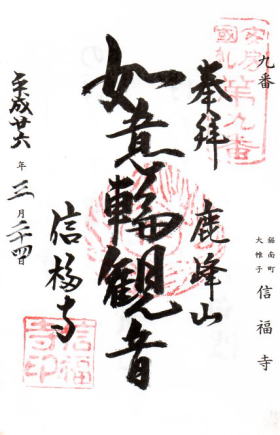 九番
鋸南町
大帷子
信福寺
安房
國札
第九番
奉拝
鹿峰山
如意輪観音
信福寺
信福
寺印
平成廿六年三月二十四日